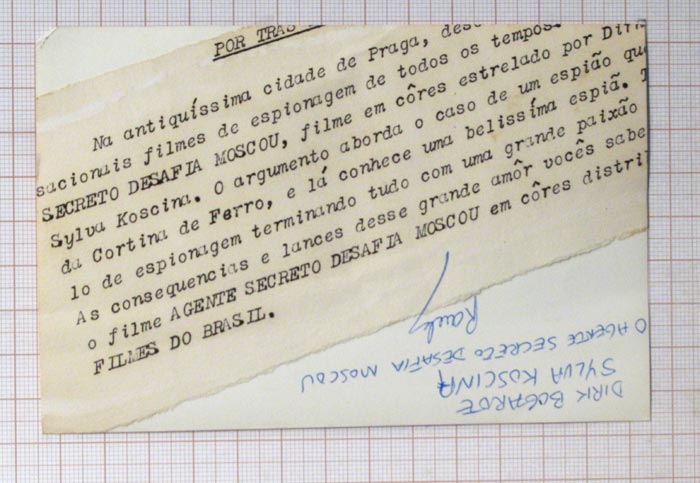 POR TRAS
Na antiquíssima cidade de Praga,
sacionais filmes de espionagem de todos os tempos.
SECRETO DESAFIA MOSCOU, filme em côres estrelado por Dirk
Sylva Koscina. O argumento aborda o caso de um espião que
da Cortina de Ferro, e lá conhece uma belissíma espiã.
lo de espionagem terminando tudo com uma grande paixão
As consequencias e lances desse grande amôr vocês sabe
o filme AGENTE SECRETO DESAFIA MOSCOU em côres distri
FILMES DO BRASIL.
DIRK BOGARDE
SYLVA KOSCINA
O AGENTE SECRETO DESAFIA MOSCOU